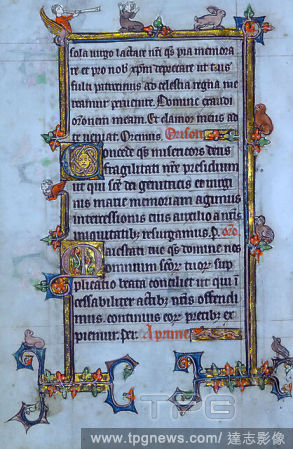 sola virgo lactare
re et pro nob xpm deprecare ut tuis
fulti patrociniis ad celestia regna me
Domine exaudi
orōnem meam. Et clamor meus ad
te veniat. Oremus. Orison
Concede qs misericors deus
fragilitati nre presidium
ut qui sce dei genitricis et virgi
nis marie memoriam agimus
intercessionis eius auxilio a nris
iniquitatib; resurgamus. p. oro
Maiestati tue qs domine nos
omnium scor tuor sup
plicatio beata conciliet ut qui i
cessabiliter actib; nris offendi
mus. continuis eor precib; ex
piemur. per. A prime
TPG
www.tpgnews.com / 達志影像